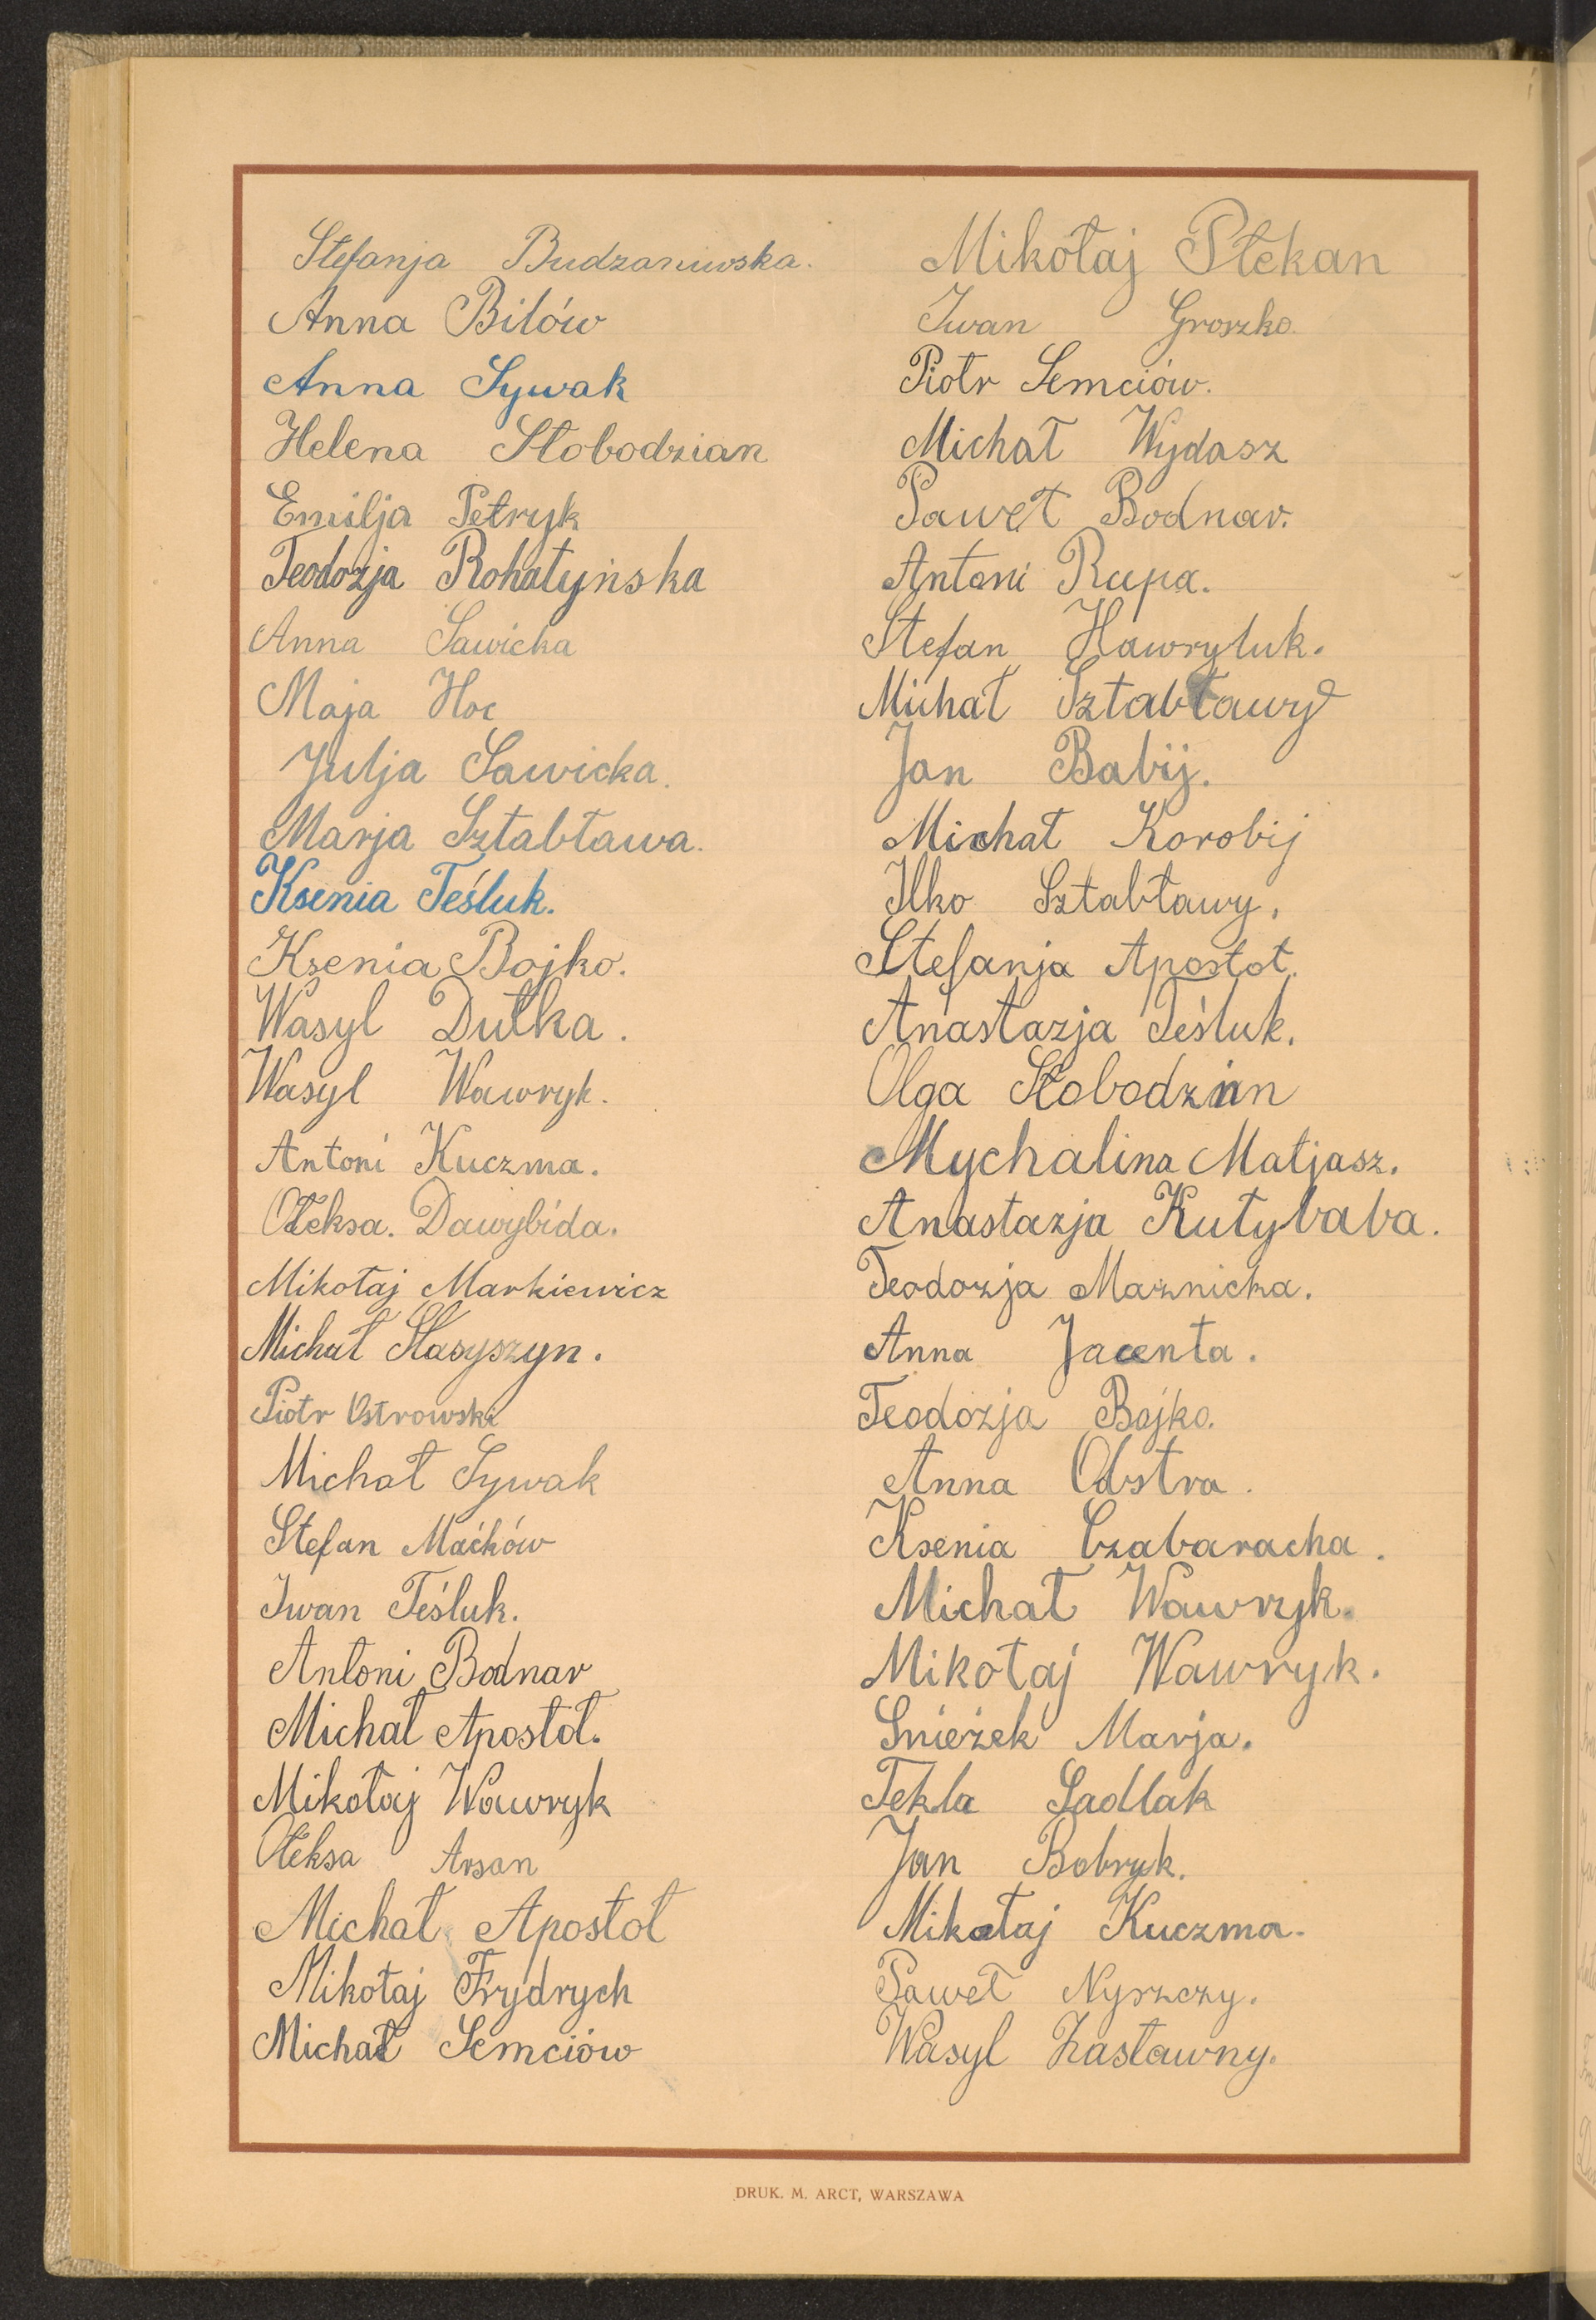 Stefanja Budzaniwska.
Anna Bilów
Anna Sywak
Helena Słobodzian
Emilja Petryk
Teodozja Rohatyńska
Anna Sawicka
Maja Hoc
Julja Sawicka.
Marja Sztabława.
Ksenia Teśluk.
Ksenia Bojko.
Wasyl Dutka.
Wasyl Wawryk.
Antoni Kuczma.
Ołeksa. Dawybida.
Mikołaj Markiewicz
Michał Stasyszyn.
Piotr Ostrowski
Michał Sywak
Stefan Maćków
Iwan Teśluk.
Antoni Bodnar
Michał Apostoł.
Mikołaj Wawryk
Ołeksa Arsan
Michał Apostoł
Mikołaj Frydrych
Michał Semciów
Mikołaj Płekan
Iwan Groszko.
Piotr Semciów.
Michał Wydasz
Paweł Bodnar.
Antoni Rupa.
Stefan Hawryluk.
Michał Sztabławy
Jan Babij.
Michał Korobij
Ilko Sztabławy.
Stefanja Apostoł.
Anastazja Teśluk.
Olga Słobodzian
Mychalina Matjasz.
Anastazja Kutybaba.
Teodozja Maznicka.
Anna Jacenta.
Teodozja Bojko.
Anna Obstra.
Ksenia Czabaracha.
Michał Wawryk.
Mikołaj Wawryk.
Śnieżek Marja.
Tekla Sadlak
Jan Bobryk.
Mikołaj Kuczma.
Paweł Nyszczy.
Wasyl Zasławny.
DRUK. M. ARCT, WARSZAWA